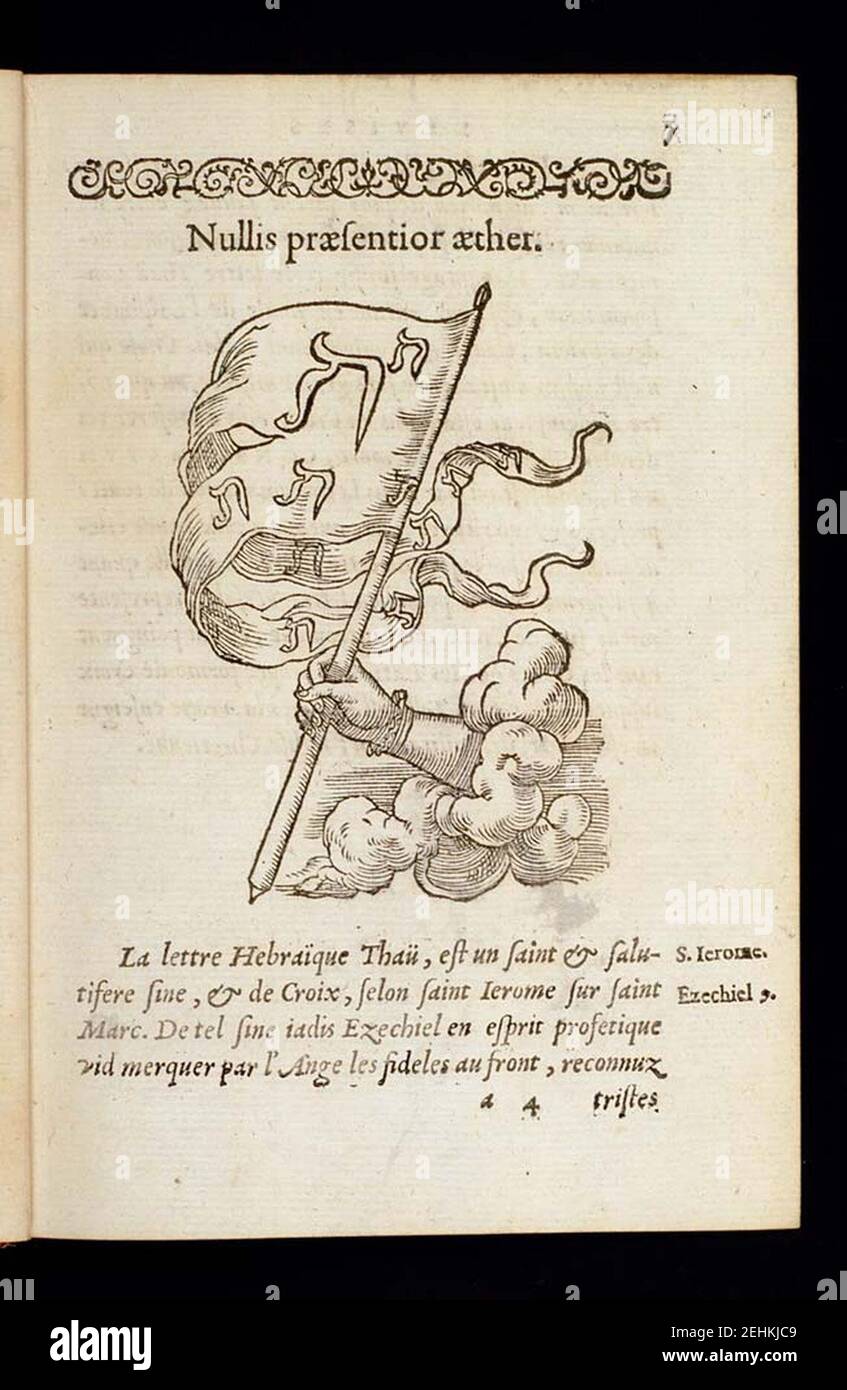 7
Nullis præſentior æther.
ת ת
ת ת ת
ת ת
ת
ת ת
La lettre Hebraïque Thaü, eſt un ſaint & ſalu-
tifere ſine, & de Croix, ſelon ſaint Ierome ſur ſaint
Marc. De tel ſine iadis Ezechiel en eſprit profetique
vid merquer par l'Ange les fideles au front, reconnuz
S. Ierome.
Ezechiel 9.
a 4 triſtes
alamy
Image ID: 2EHKJC9
www.alamy.com